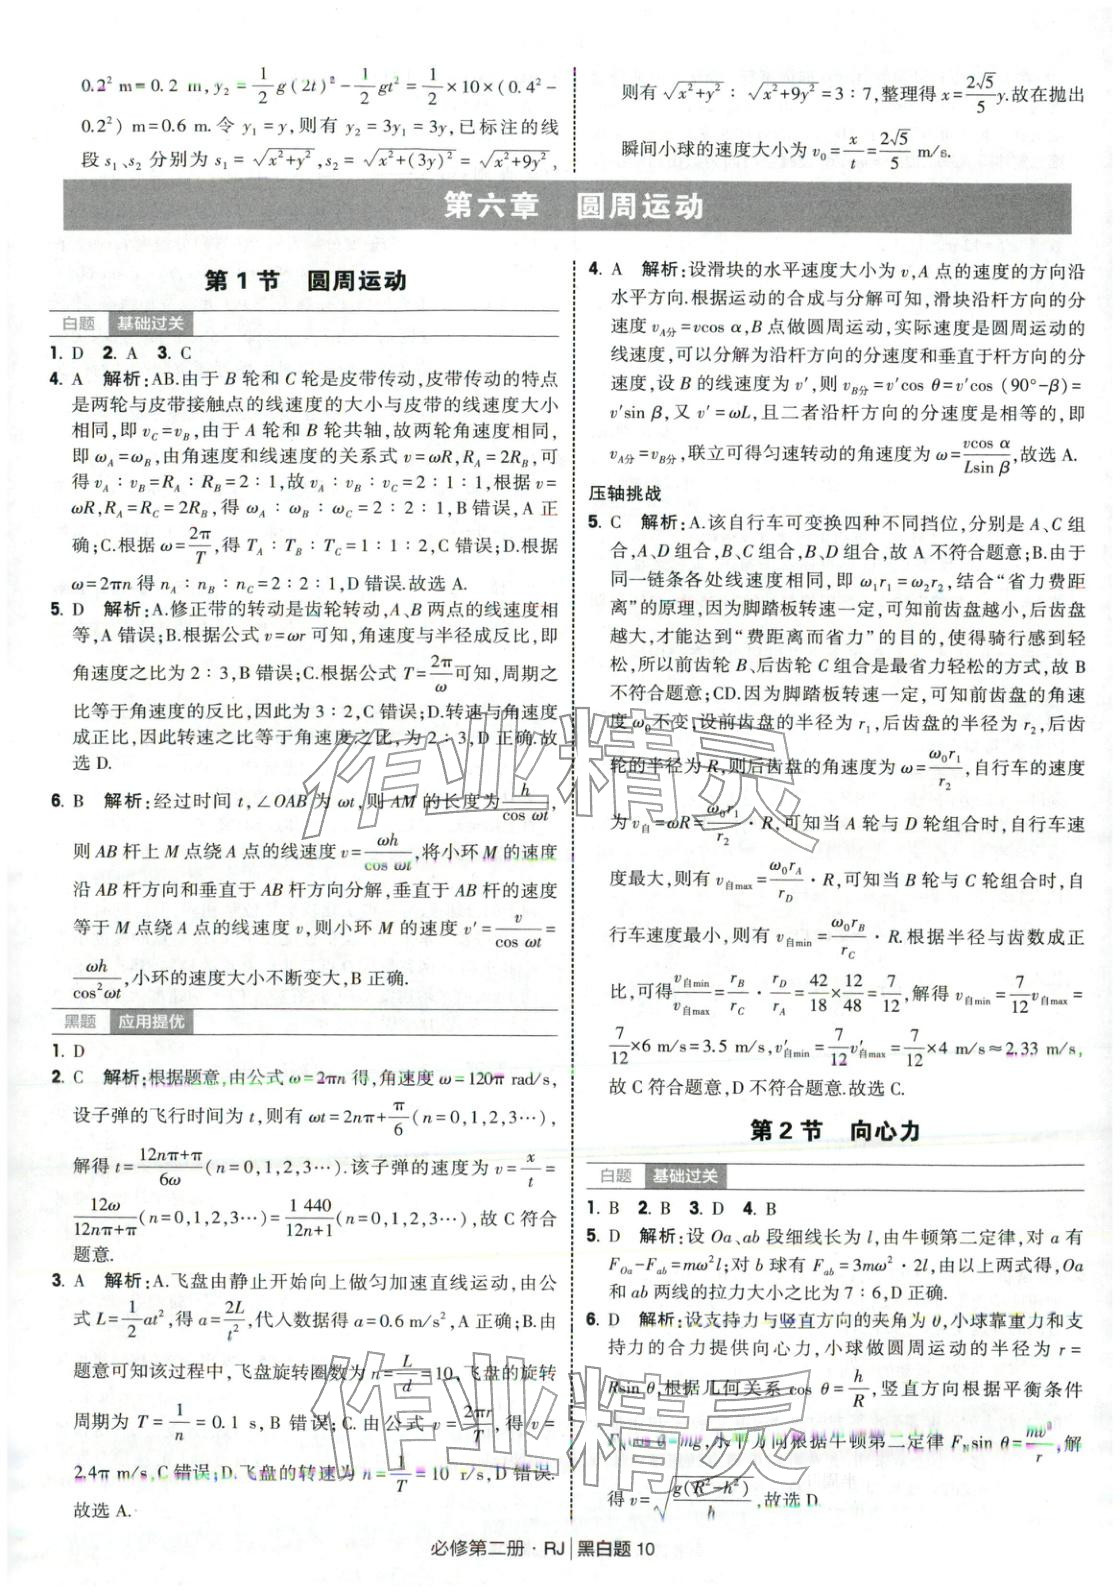 0.2² m=0.2 m,y₂=1/2 g(2t)²-1/2 gt²=1/2×10×(0.4²-
0.2²) m=0.6 m.令 y₁=y,则有 y₂=3y₁=3y,已标注的线
段 s₁、s₂ 分别为 s₁=√(x²+y²),s₂=√(x²+(3y)²)=√(x²+9y²),
则有 √(x²+y²)∶√(x²+9y²)=3∶7,整理得 x=2√5/5 y.故在抛出
瞬间小球的速度大小为 v₀=x/t=2√5/5 m/s.
第六章 圆周运动
第1节 圆周运动
白题 基础过关
1. D 2. A 3. C
4. A 解析:AB.由于 B 轮和 C 轮是皮带传动,皮带传动的特点
是两轮与皮带接触点的线速度的大小与皮带的线速度大小
相同,即 v_C=v_B,由于 A 轮和 B 轮共轴,故两轮角速度相同,
即 ω_A=ω_B,由角速度和线速度的关系式 v=ωR,R_A=2R_B,可
得 v_A∶v_B=R_A∶R_B=2∶1,故 v_A∶v_B∶v_C=2∶1∶1,根据 v=
ωR,R_A=R_C=2R_B,得 ω_A∶ω_B∶ω_C=2∶2∶1,B错误,A 正
确;C.根据 ω=2π/T,得 T_A∶T_B∶T_C=1∶1∶2,C错误;D.根据
ω=2πn 得 n_A∶n_B∶n_C=2∶2∶1,D 错误.故选 A.
5. D 解析:A.修正带的转动是齿轮转动,A、B 两点的线速度相
等,A 错误;B.根据公式 v=ωr 可知,角速度与半径成反比,即
角速度之比为 2∶3,B 错误;C.根据公式 T=2π/ω可知,周期之
比等于角速度的反比,因此为 3∶2,C 错误;D.转速与角速度
成正比,因此转速之比等于角速度之比,为 2∶3,D 正确.故
选 D.
6. B 解析:经过时间 t,∠OAB 为 ωt,则 AM 的长度为h/cos ωt,
则 AB 杆上 M 点绕 A 点的线速度 v=ωh/cos ωt,将小环 M 的速度
沿 AB 杆方向和垂直于 AB 杆方向分解,垂直于 AB 杆的速度
等于 M 点绕 A 点的线速度 v,则小环 M 的速度 v′=v/cos ωt=
ωh/cos²ωt,小环的速度大小不断变大,B 正确.
黑题 应用提优
1. D
2. C 解析:根据题意,由公式 ω=2πn 得,角速度 ω=120π rad/s,
设子弹的飞行时间为 t,则有 ωt=2nπ+π/6(n=0,1,2,3⋯),
解得 t=(12nπ+π)/6ω(n=0,1,2,3⋯).该子弹的速度为 v=x/t=
12ω/(12nπ+π)(n=0,1,2,3⋯)=1 440/(12n+1)(n=0,1,2,3⋯),故 C 符合
题意.
3. A 解析:A.飞盘由静止开始向上做匀加速直线运动,由公
式 L=1/2 at²,得 a=2L/t²,代入数据得 a=0.6 m/s²,A 正确;B.由
题意可知该过程中,飞盘旋转圈数为 n=L/d=10,飞盘的旋转
周期为 T=1/n=0.1 s,B 错误;C.由公式 v=2πr/T,得 v=
2.4π m/s,C 错误;D.飞盘的转速为 n=1/T=10 r/s,D 错误.
故选 A.
4. A 解析:设滑块的水平速度大小为 v,A 点的速度的方向沿
水平方向.根据运动的合成与分解可知,滑块沿杆方向的分
速度 v_A分=vcos α,B 点做圆周运动,实际速度是圆周运动的
线速度,可以分解为沿杆方向的分速度和垂直于杆方向的分
速度,设 B 的线速度为 v′,则 v_B分=v′cos θ=v′cos (90°-β)=
v′sin β,又 v′=ωL,且二者沿杆方向的分速度是相等的,即
v_A分=v_B分,联立可得匀速转动的角速度为 ω=vcos α/Lsin β,故选 A.
压轴挑战
5. C 解析:A.该自行车可变换四种不同挡位,分别是 A、C 组
合,A、D 组合,B、C 组合,B、D 组合,故 A 不符合题意;B.由于
同一链条各处线速度相同,即 ω₁r₁=ω₂r₂,结合“省力费距
离”的原理,因为脚踏板转速一定,可知前齿盘越小,后齿盘
越大,才能达到“费距离而省力”的目的,使得骑行感到轻
松,所以前齿轮 B、后齿轮 C 组合是最省力轻松的方式,故 B
不符合题意;CD.因为脚踏板转速一定,可知前齿盘的角速
度 ω₀不变,设前齿盘的半径为 r₁,后齿盘的半径为 r₂,后齿
轮的半径为 R,则后齿盘的角速度为 ω=ω₀r₁/r₂,自行车的速度
为 v自=ωR=ω₀r₁/r₂·R,可知当 A 轮与 D 轮组合时,自行车速
度最大,则有 v自max=ω₀r_A/r_D·R,可知当 B 轮与 C 轮组合时,自
行车速度最小,则有 v自min=ω₀r_B/r_C·R.根据半径与齿数成正
比,可得v自min/v自max=r_B/r_C·r_D/r_A=42/18×12/48=7/12,解得 v自min=7/12 v自max=
7/12×6 m/s=3.5 m/s,v′自min=7/12 v′自max=7/12×4 m/s≈2.33 m/s,
故 C 符合题意,D 不符合题意.故选 C.
第2节 向心力
白题 基础过关
1. B 2. B 3. D 4. B
5. D 解析:设 Oa、ab 段细线长为 l,由牛顿第二定律,对 a 有
F_Oa-F_ab=mω²l;对 b 球有 F_ab=3mω²·2l,由以上两式得,Oa
和 ab 两线的拉力大小之比为 7∶6,D 正确.
6. D 解析:设支持力与竖直方向的夹角为 θ,小球靠重力和支
持力的合力提供向心力,小球做圆周运动的半径为 r=
Rsin θ,根据几何关系 cos θ=h/R,竖直方向根据平衡条件
F_Ncos θ=mg,水平方向根据牛顿第二定律 F_Nsin θ=mv²/r,解
得 v=√(g(R²-h²)/h),故选 D.
作业精灵
作业精灵
必修第二册·RJ 黑白题 10